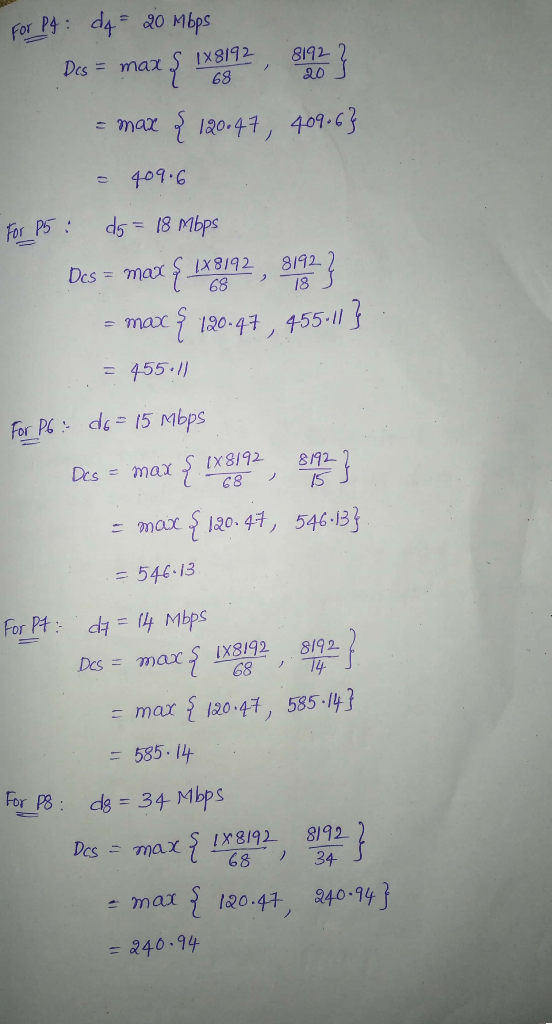 For P4 : d4 = 20 Mbps
Dcs = max { 1x8192/68 , 8192/20 }
= max { 120.47, 409.6}
= 409.6
For P5 : d5 = 18 Mbps
Dcs = max { 1x8192/68 , 8192/18 }
= max { 120.47, 455.11 }
= 455.11
For P6 :- d6 = 15 Mbps
Dcs = max { 1x8192/68 , 8192/15 }
= max { 120.47, 546.13}
= 546.13
For P7 : d7 = 14 Mbps
Dcs = max { 1x8192/68 , 8192/14 }
= max { 120.47, 585.14}
= 585.14
For P8 : d8 = 34 Mbps
Dcs = max { 1x8192/68 , 8192/34 }
= max { 120.47, 240.94}
= 240.94